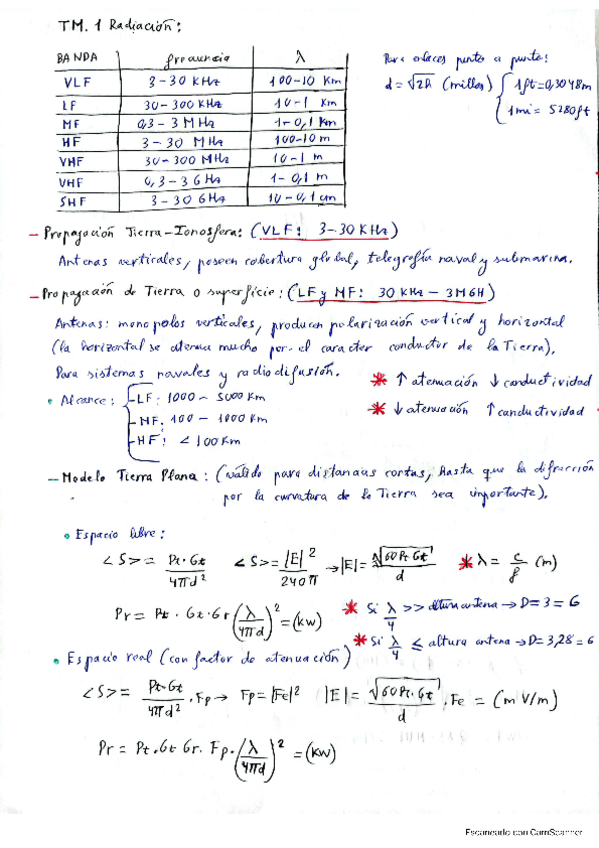 TM. 1 Radiación:
BANDA frecuencia λ
VLF 3-30 KHz 100-10 Km
LF 30-300 KHz 10-1 Km
MF 0,3-3 MHz 1-0,1 Km
HF 3-30 MHz 100-10 m
VHF 30-300 MHz 10-1 m
VHF 0,3-3 GHz 1-0,1 m
SHF 3-30 GHz 10-0,1 cm
Para enlaces punto a punto:
d = √2h (millas) { 1ft = 0,3048m
1mi = 5280ft
- Propagación Tierra-Ionosfera: (VLF: 3-30 KHz)
Antenas verticales, poseen cobertura global, telegrafía naval y submarina.
- Propagación de Tierra o superficie: (LF y MF: 30 KHz - 3MGH)
Antenas: monopolos verticales, producen polarización vertical y horizontal
(la horizontal se atenua mucho por el caracter conductor de la Tierra).
Para sistemas navales y radiodifusión.
* ↑ atenuación ↓ conductividad
* ↓ atenuación ↑ conductividad
• Alcance: { -LF: 1000 - 5000 Km
-MF: 100 - 1000 Km
-HF: < 100 Km
- Modelo Tierra Plana: (válido para distancias cortas, hasta que la difracción
por la curvatura de la Tierra sea importante).
• Espacio libre:
<S> = Pt·Gt / 4πd² <S> = |E|² / 240π → |E| = √60Pt·Gt / d * λ = c / f (m)
Pr = Pt · Gt · Gr (λ / 4πd)² = (kw)
* Si λ/4 >> altura antena → D = 3 = G
* Si λ/4 ≤ altura antena → D = 3,28 = G
• Espacio real (con factor de atenuación)
<S> = Pt·Gt / 4πd² · Fp → Fp = |Fe|² |E| = √60Pt·Gt / d · Fe = (mV/m)
Pr = Pt·Gt Gr. Fp. (λ / 4πd)² = (kw)
Escaneado con CamScanner